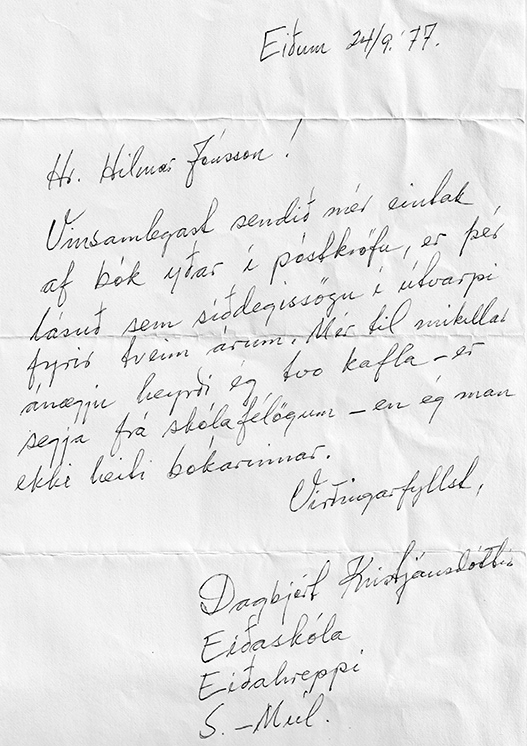 Eiðum 24/9.'77.
Hr. Hilmar Jónsson!
Vinsamlegast sendið mér eintak
af bók yðar í póstkröfu, er þér
lásuð sem síðdegissögu í útvarpi
fyrir tveim árum. Mér til mikillar
ánægju heyrði ég tvo kafla – er
segja frá skólafélögum – en ég man
ekki heiti bókarinnar.
Virðingarfyllst,
Dagbjört Kristjánsdóttir
Eiðaskóla
Eiðahreppi
S.-Múl.